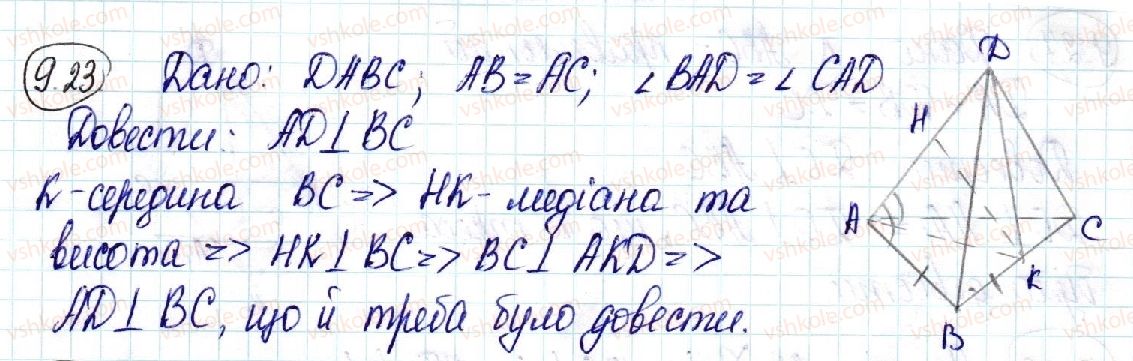 9.23 Дано: DABC; AB=AC; ∠BAD=∠CAD
Довести: AD⊥BC
K-середина BC=> HK-медіана та
висота => HK⊥BC=> BC⊥AKD=>
AD⊥BC, що й треба було довести.
D
H
A
C
K
B
vshkole.com